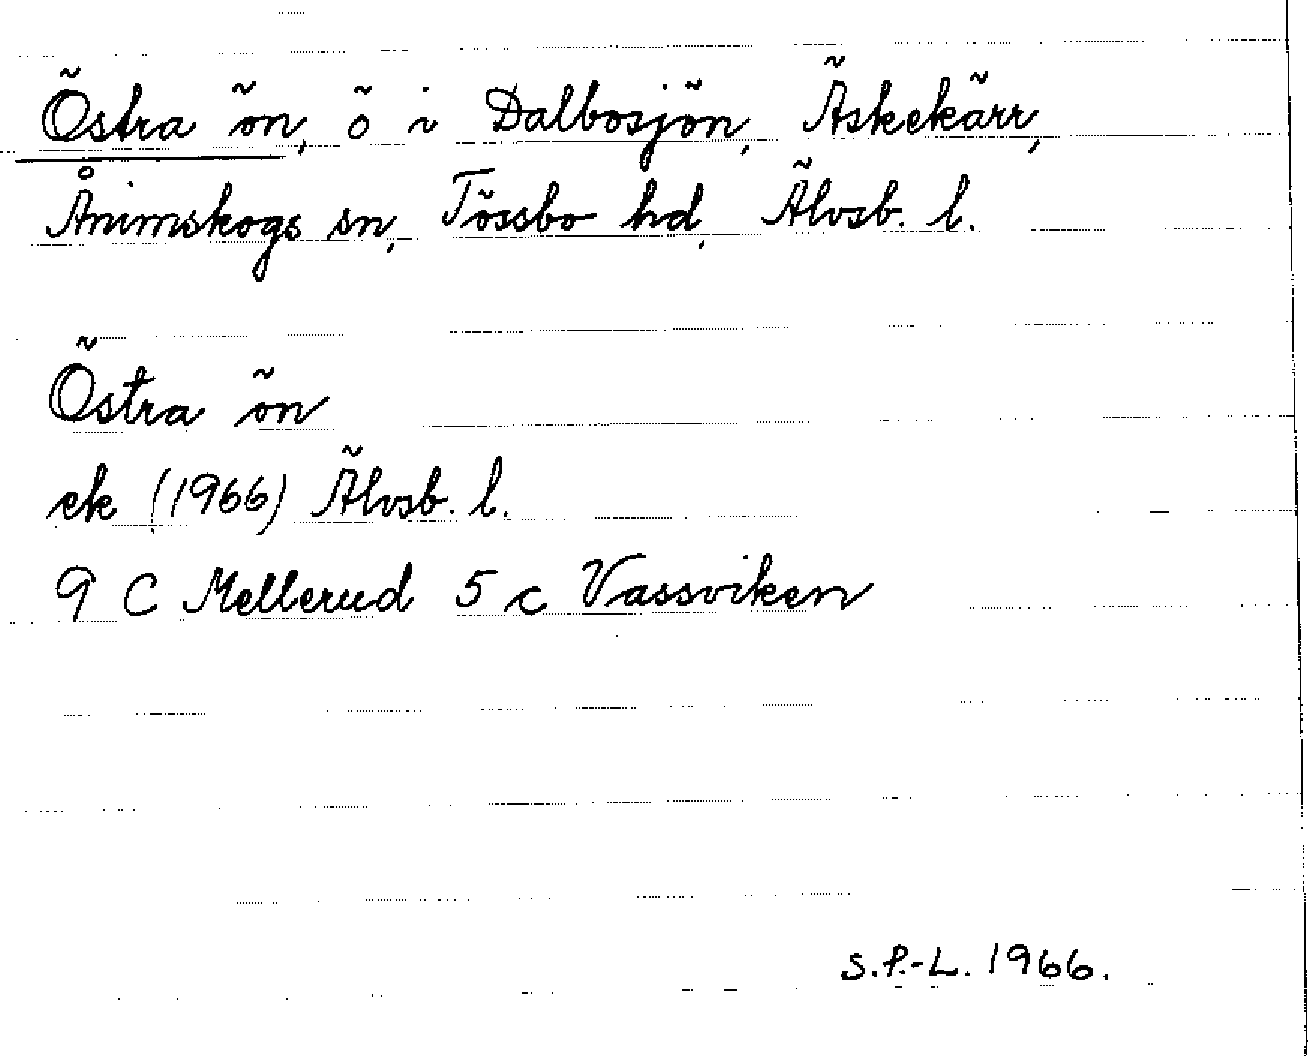 Östra ön, ö i Dalbosjön, Äskekärr,
Ånimskogs sn, Tössbo hd, Älvsb. l.
Östra ön
ek (1966) Älvsb. l.
9 C Mellerud 5 c Vassviken
S.P.-L. 1966.